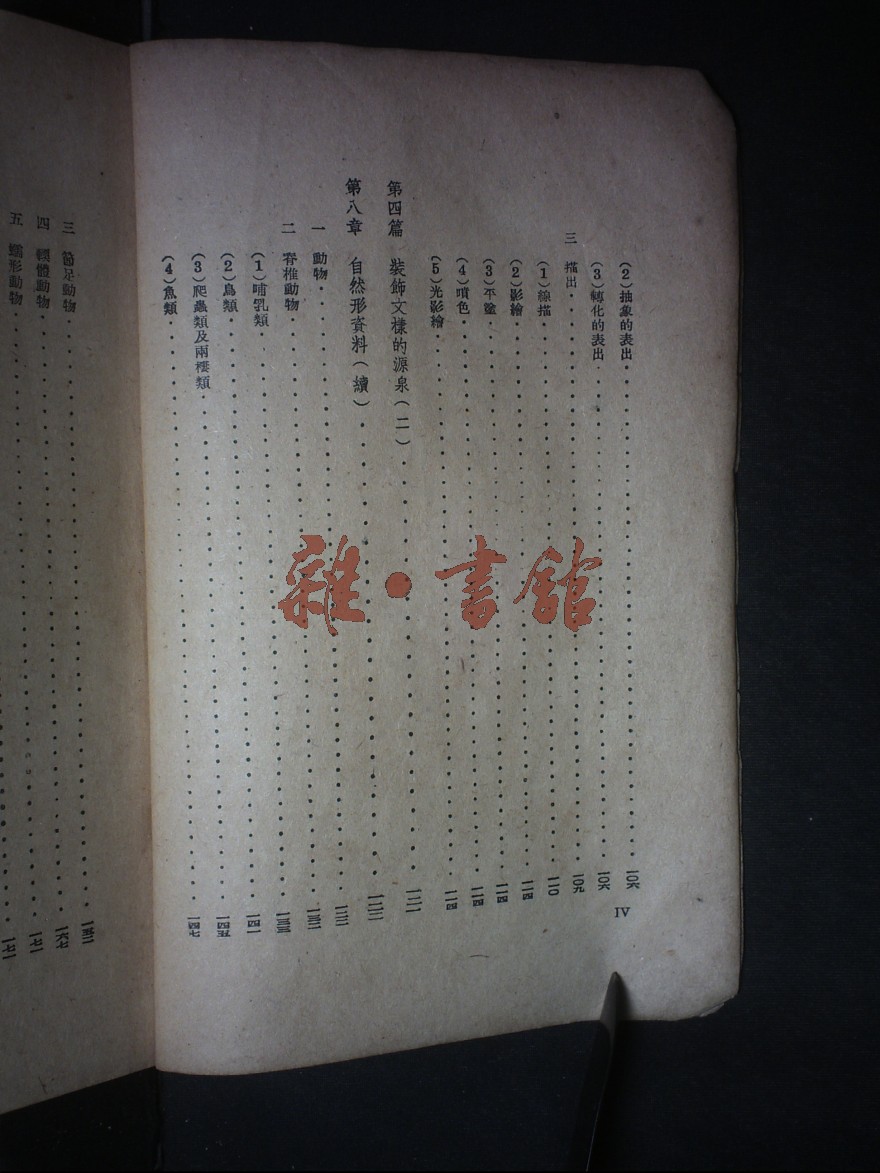 (2)抽象的表出・・・・・・一〇六
(3)轉化的表出・・・・・・一〇六
三 描出・・・・・・一〇九
(1)線描・・・・・・一一〇
(2)影繪・・・・・・一一四
(3)平塗・・・・・・一一四
(4)噴色・・・・・・一一四
(5)光影繪・・・・・・一一四
第四篇 裝飾文樣的源泉(二)・・・・・・一二一
第八章 自然形資料(續)・・・・・・一二三
一 動物・・・・・・一二三
二 脊椎動物・・・・・・一三二
(1)哺乳類・・・・・・一三三
(2)鳥類・・・・・・一四一
(3)爬蟲類及兩棲類・・・・・・一四五
(4)魚類・・・・・・一四七
IV
三 節足動物・・・・・・一五二
四 軟體動物・・・・・・一六七
五 蠕形動物・・・・・・一七一
一七一
雜・書館